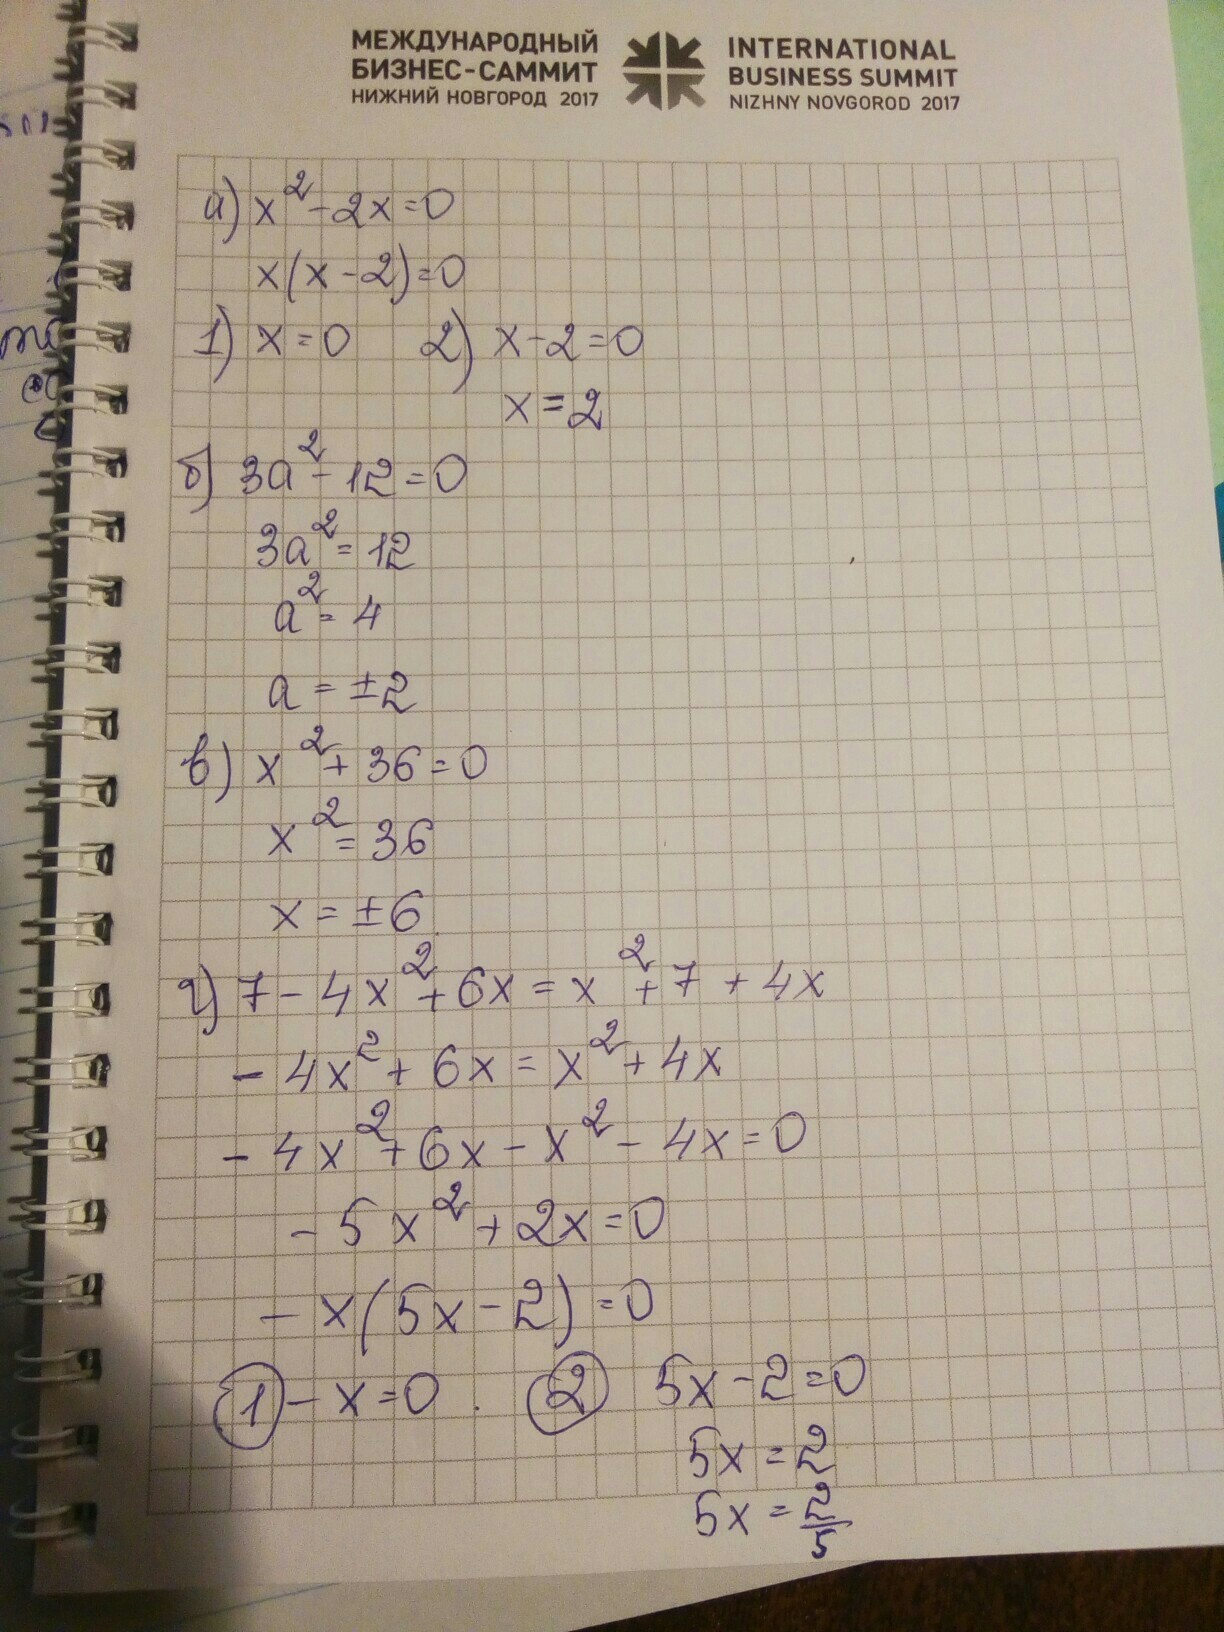 МЕЖДУНАРОДНЫЙ
БИЗНЕС-САММИТ
НИЖНИЙ НОВГОРОД 2017
INTERNATIONAL
BUSINESS SUMMIT
NIZHNY NOVGOROD 2017
а) x² - 2x = 0
x(x - 2) = 0
1) x = 0 2) x - 2 = 0
x = 2
б) 3a² - 12 = 0
3a² = 12
a² = 4
a = ±2
в) x² + 36 = 0
x² = 36
x = ±6
г) 7 - 4x² + 6x = x² + 7 + 4x
- 4x² + 6x = x² + 4x
- 4x² + 6x - x² - 4x = 0
- 5x² + 2x = 0
- x(5x - 2) = 0
1 - x = 0 . 2 5x - 2 = 0
5x = 2
5x = 2/5